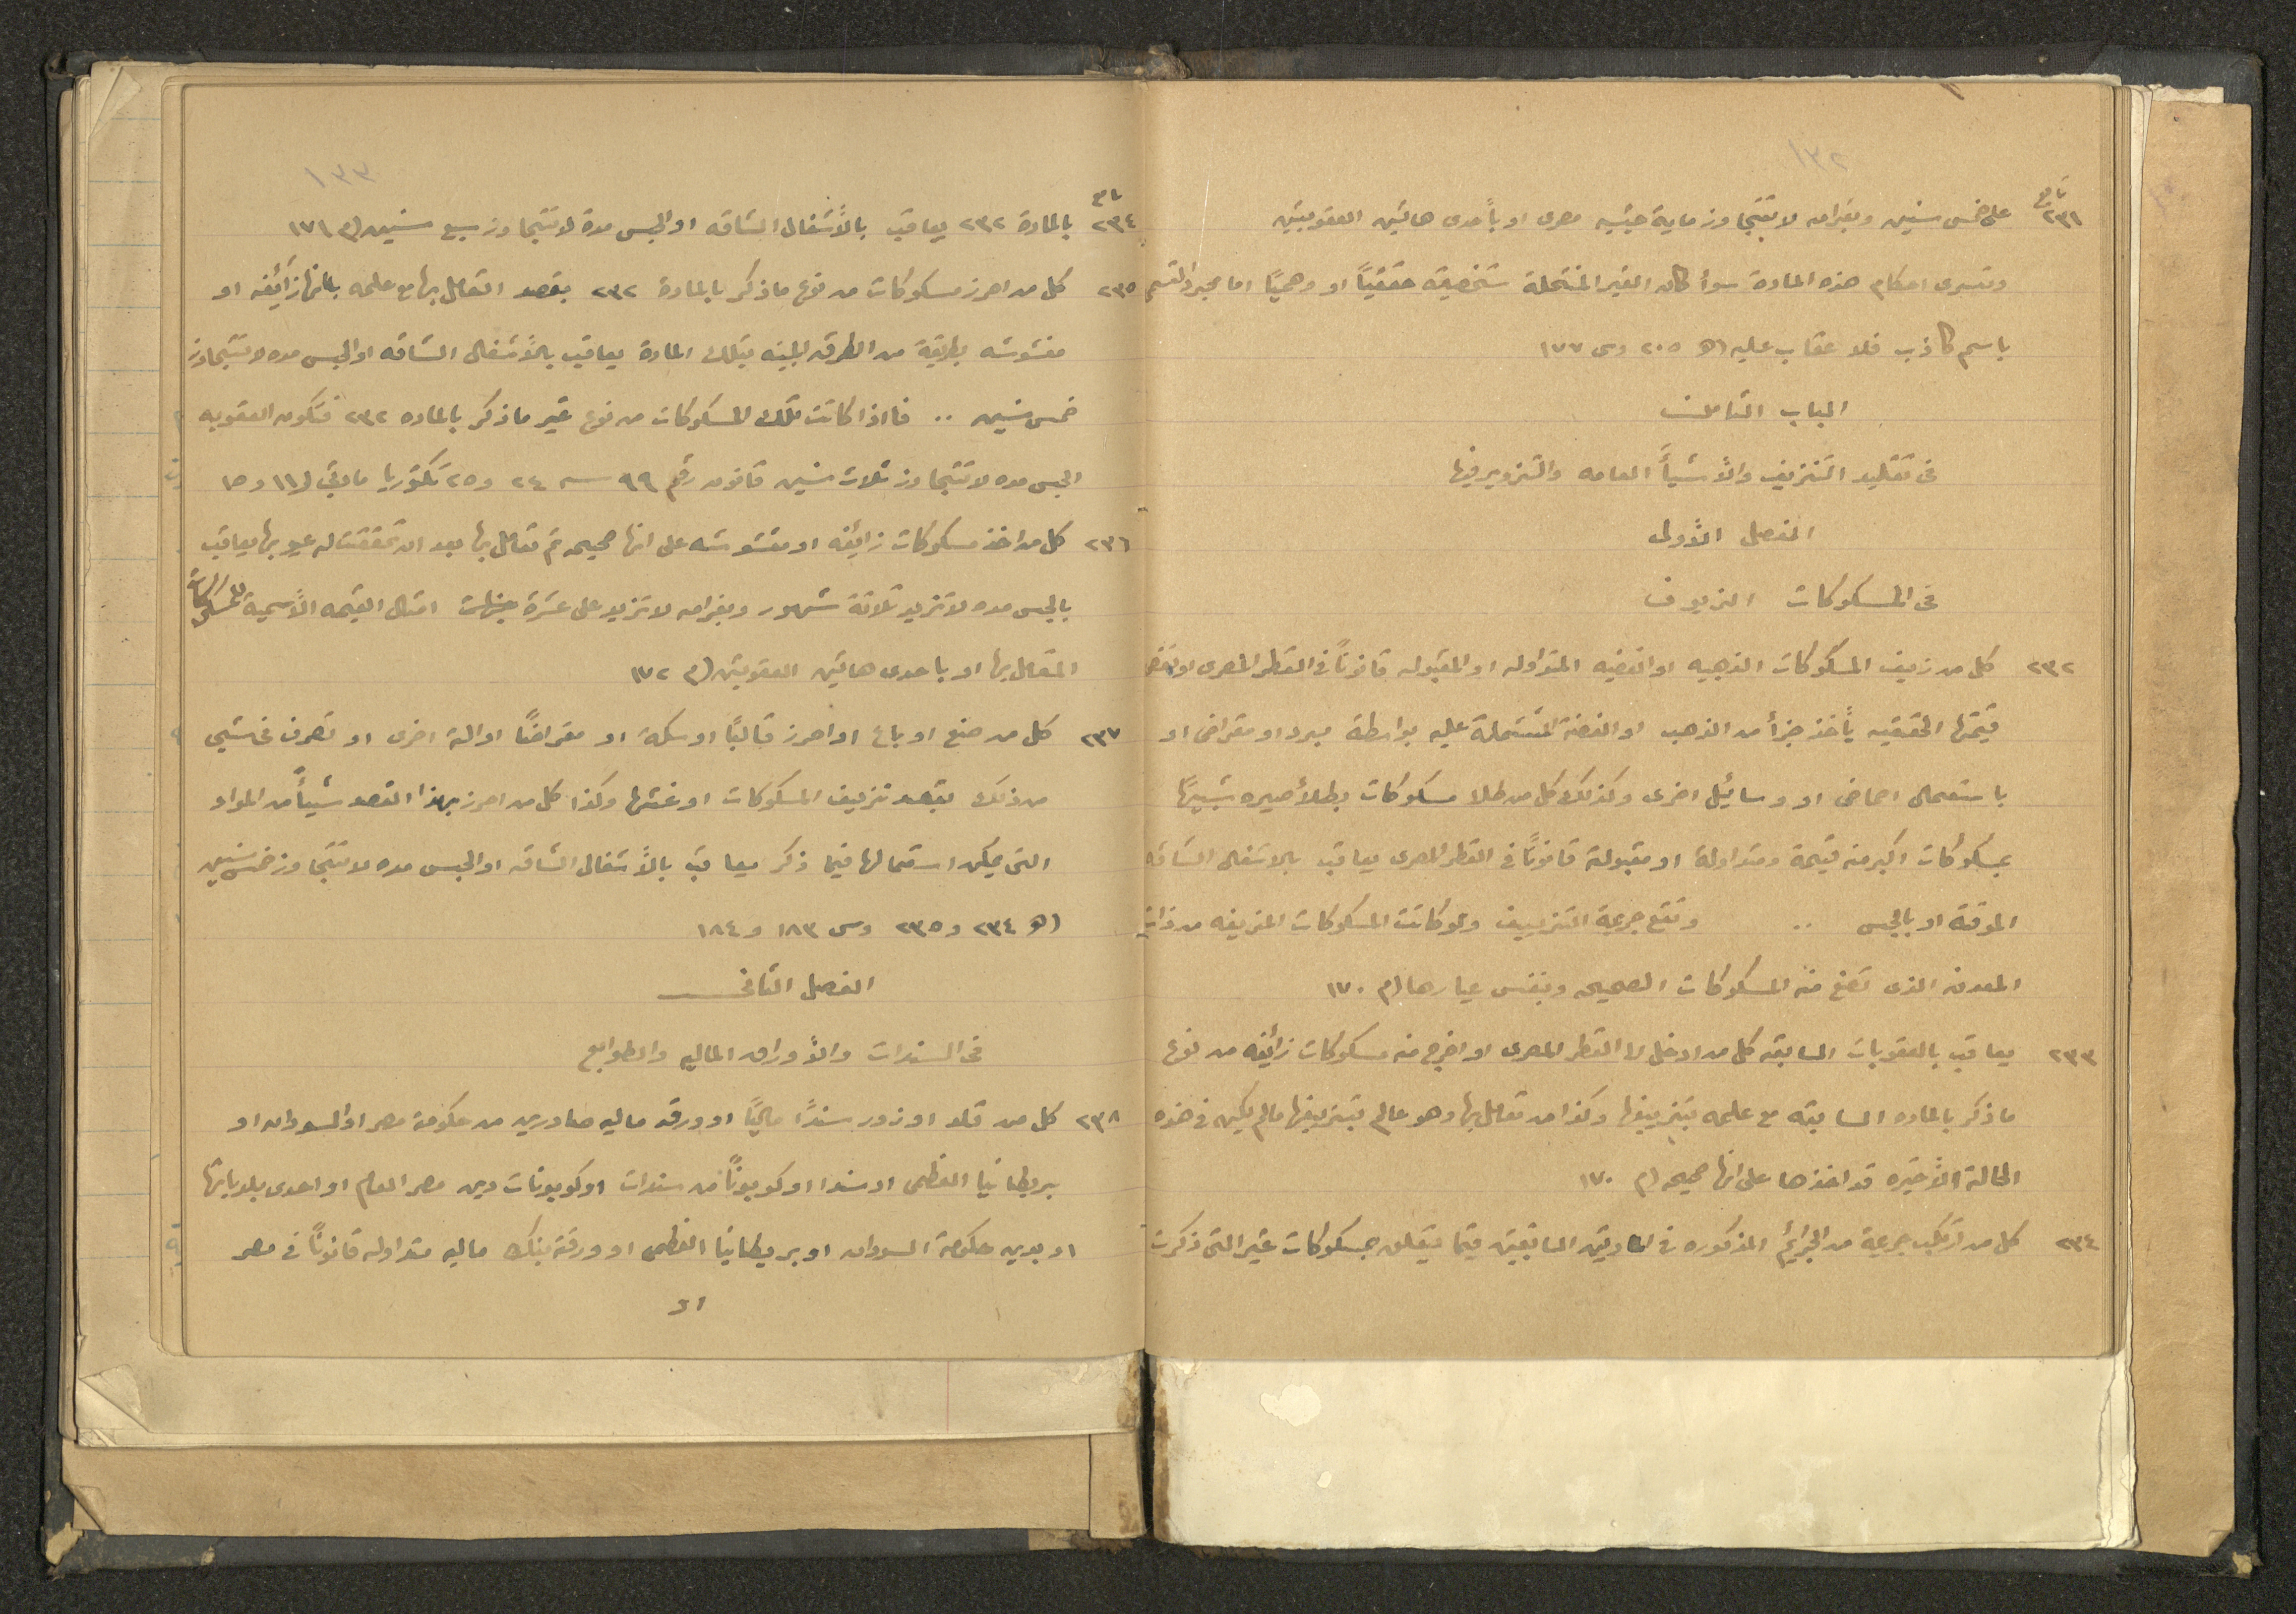 ١٣٢
تابع
٢٣١ على خمس سنين وبغرامه لا تتجاوز ماية جنيه مصرى او بأحدى هاتين العقوبتين
وتسرى احكام هذه المادة سوأ كان الغير المنتحلة شخصيته حقيقيًا او وهميًا اما مجرد التسمى
باسم كاذب فلا عقاب عليه (ھ ٢٠٥ وس ١٧٧
الباب الثامن
فى تقليد التزييف والأشيأ العامه والتزوير فيها
الفصل الأول
فى المسكوكات الزيوف
٢٣٢ كل من زيف المسكوكات الذهبيه او الفضيه المتداوله او المقبوله قانونًا فى القطر المصرى او نقص
قيمتها الحقيقيه بأخذ جزأ من الذهب او الفضة المشتملة عليه بواسطة مبرد او مقراض او
باستعمال احماض او وسائيل اخرى وكذلك كل من طلا مسكوكات بطلأ صيره شبيهًا
بمسكوكات اكبر منه قيمة ومتداولة او مقبولة قانونًا فى القطر المصرى يعاقب بالاشغال الشاقه
الموقتة او بالحبس .. وتقع جريمة التزييف ولو كانت المسكوكات المزيفه من ذات
المعدن الذى تصنع منه المسكوكات الصحيحه وبنفس عيارها (م ١٧٠
٢٣٣ يعاقب بالعقوبات السابقه كل من ادخل الى القطر المصرى او اخرج منه مسكوكات زائفه من نوع
ما ذكر بالماده السابقه مع علمه بتزييفها وكذا من تعامل بها وهو عالم بتزييفها مالم يكن فى هذه
الحالة الأخيره قد اخذها على انها صحيحه (م ١٧٠
٢٣٤ كل من ارتكب جريمة من الجرائم المذكوره فى المادتين السابقتين فيما يتعلق بمسكوكات غير التى ذكرت
١٣٣
تابع
٢٣٤ بالمادة ٢٣٢ يعاقب بالأشغال الشاقه او الحبس مدة لا تتجاوز سبع سنين (م ١٧١
٢٣٥ كل من احرز مسكوكات من نوع ما ذكر بالمادة ٢٣٢ بقصد التعامل بها مع علمه بانها زائفه او
مغشوشه بطريقة من الطرق المبينه بتلك المادة يعاقب بالأشغال الشاقه او الحبس مده لا تتجاوز
خمس سنين .. فااذا كانت تلك المسكوكات من نوع غير ما ذكر بالماده ٢٣٢ فتكون العقوبه
الحبس مده لا تتجاوز ثلاث سنين قانون رقم ٩٩ سـ ٢٤ و ٢٥ مادتى ١١ و ١٥
٢٣٦ كل من اخذ مسكوكات زائفه او مغشوشه على انها صحيحه ثم تعامل بها بعد ان تحققت له عيوبها يعاقب
بالحبس مده لا تزيد ثلاثة شهور وبغرامه لا تزيد على عشرة امثال القيمه الأسمية للمسكوكات
المتعامل بها او باحدى هاتين العقوبتين (م ١٧٢
٢٣٧ كل من صنع او باع او احرز قالبًا او سكة او مقراضًا او الة اخرى او تصرف فى شيى
من ذلك بقصد تزييف المسكوكات او غشها وكذا كل من احرز بهذا القصد شيأً من المواد
التى يمكن استعمالها فيما ذكر يعاقب بالأشغال الشاقه او الحبس مده لا تتجاوز خمس سنين
(ھ ٢٣٤ و ٢٣٥ وس ١٨٣ و ١٨٤
الفصل الثانى
فى السندات والأوراق الماليه والطوابع
٢٣٨ كل من قلد او زور سندًا ماليًا او ورقه ماليه صادرين من حكومة مصر او السودان او
بريطانيا العظمى او سندا او كوبونًا من سندات او كوبونات دين مصر العام او احدى بلدياتها
او بدين حكومة السودان او بريطانيا العظمى او ورقة بنك ماليه متداوله قانونًا فى مصر
او